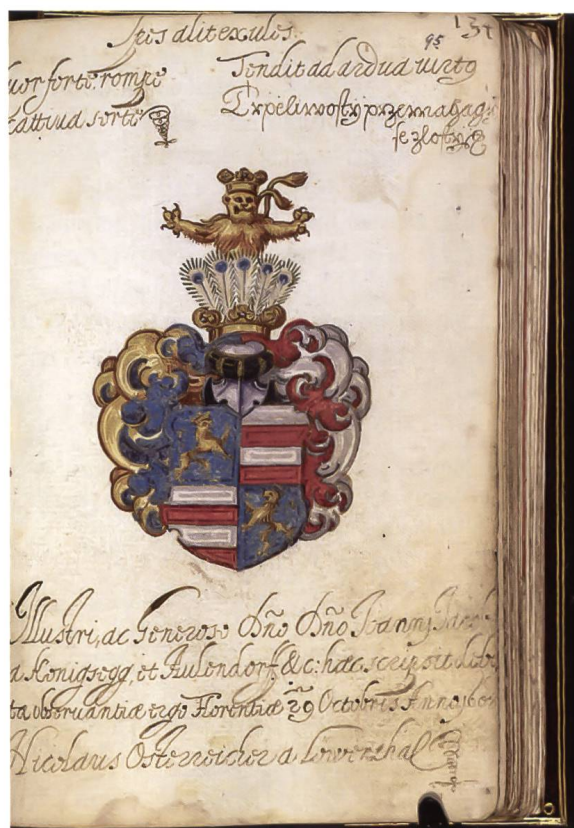 Spes alit exules.
95
134
Cuor forte: rompe
cattiva sorte
Tendit ad ardua virtus
Trpeliwosty przemahag
se zlosty
Illustri, ac Generoso Dño Dño Joanni
a Konigsegg, et Aulendorf &c: hæc scripsit debi
ta observantiæ ergo Florentiæ 29 Octobris Anno 160
Nicolaus Osterreicher a Löwenthal